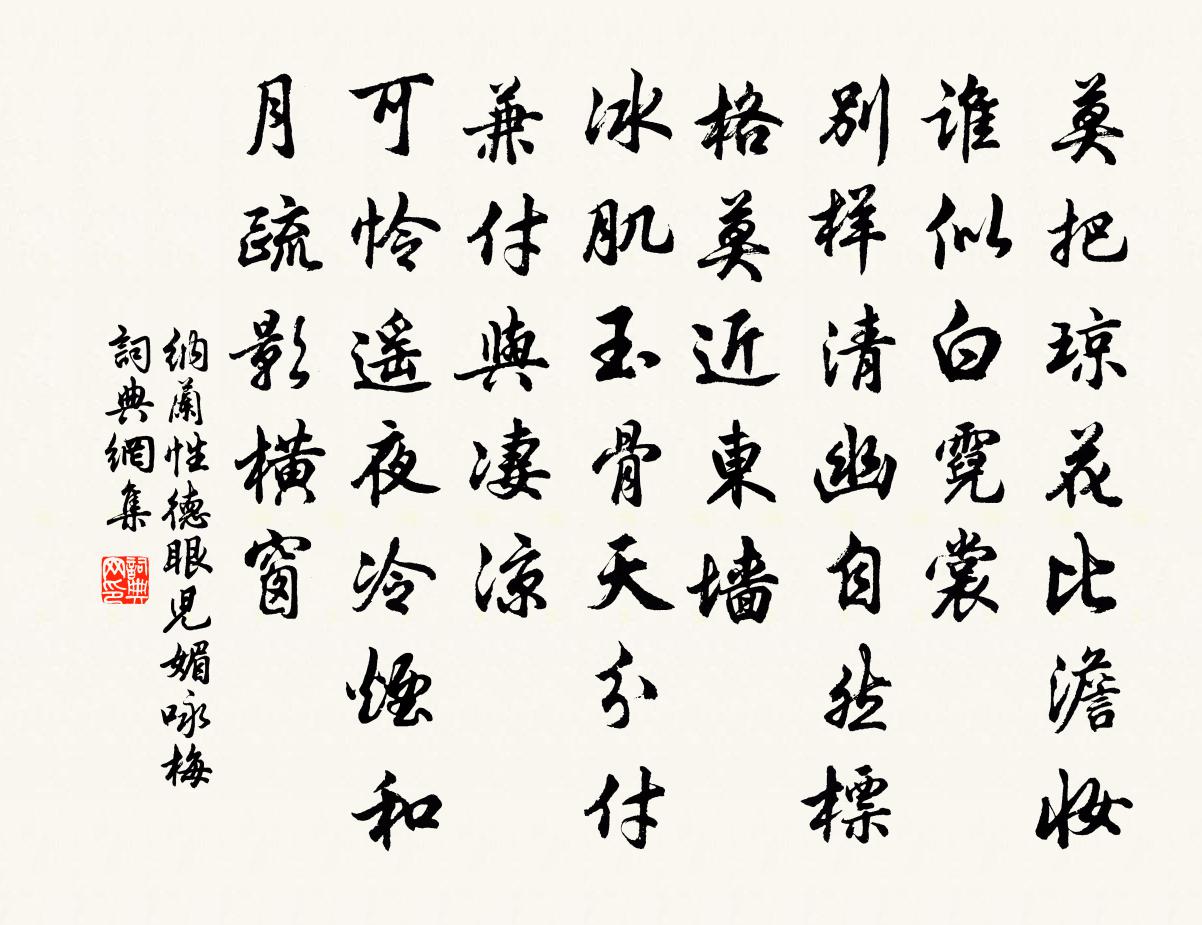 莫把琼花比澹妆
谁似白霓裳
别样清幽自然標
格莫近東墙
冰肌玉骨天分付
兼付與凄凉
可怜遥夜冷煙和
月疏影横窗
纳蘭性德眼児媚咏梅
詞典網集
詞典網印